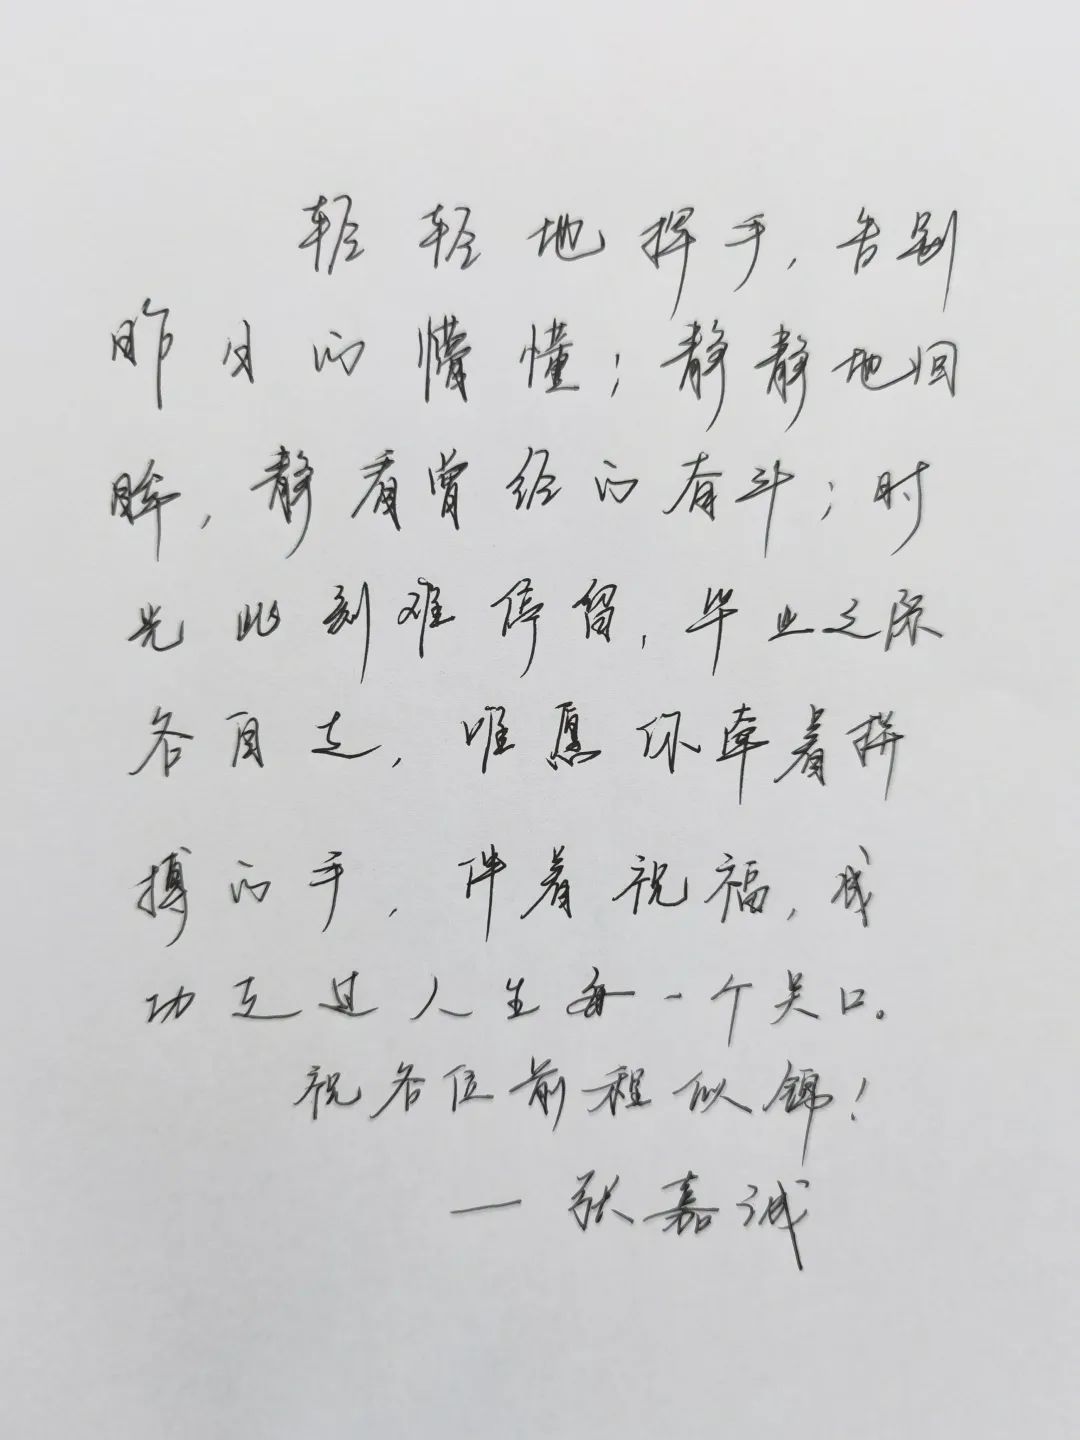 轻轻地挥手，告别
昨日的懵懂；静静地回
眸，静看曾经的奋斗；时
光此刻难停留，毕业之际
各自走，唯愿你牵着拼
搏的手，伴着祝福，成
功走过人生每一个关口。
祝各位前程似锦！
— 张嘉诚